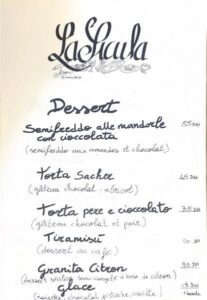 LaSicula
Dessert
Semifreddo alle mandorle 55 DH
col cioccolata
(semifreddo aux amandes et chocolat)
Torta Sacher 45 DH
(gâteau chocolat - abricot)
Torta pere e cioccolato 35 DH
(gâteau chocolat et poire)
Tiramisù DH
(dessert au café)
Granita Citron 35 DH
(dessert sicilien semi congelé à base de citron)
glace 15 DH
chocolat, pistache, vanille)